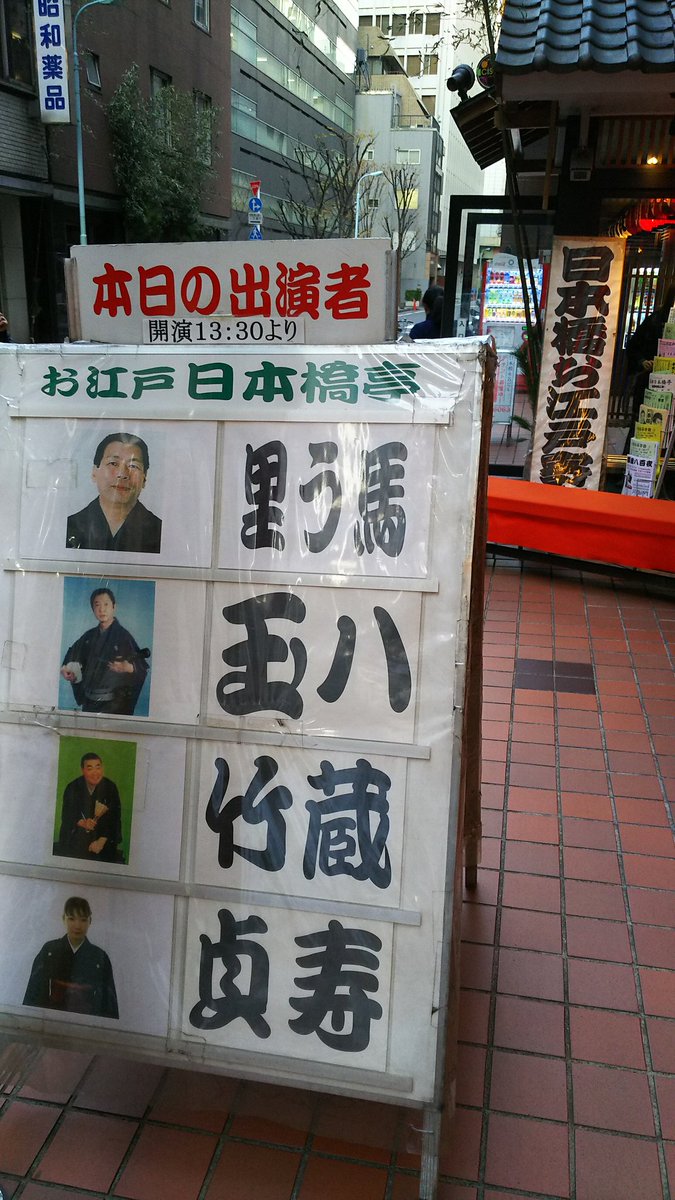 昭和薬品
本日の出演者
開演13:30より
お江戸日本橋亭
里う馬
玉八
竹蔵
貞寿
日本橋お江戸